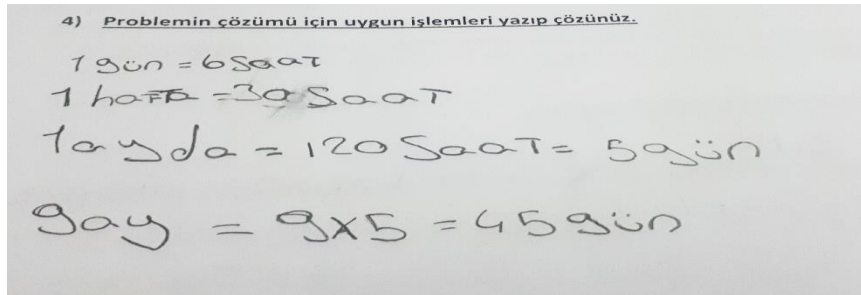 4) Problemin çözümü için uygun işlemleri yazıp çözünüz.
1 gün = 6 saat
1 hafta = 30 saat
1 ayda = 120 saat = 5 gün
9 ay = 9x5 = 45 gün